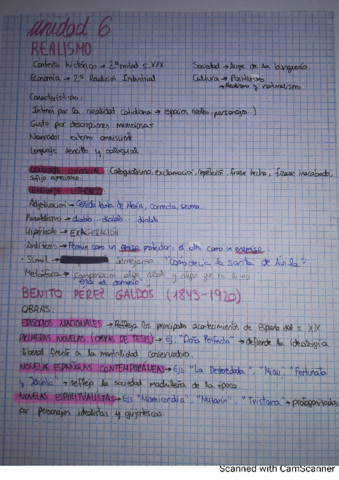 Unidad 6
REALISMO
Contexto histórico → 2ª mitad s. XIX
Sociedad → Auge de la burguesía.
Economía → 2ª Revolución Industrial
Cultura → Positivismo
→ Realismo y naturalismo
Características:
Interés por la realidad cotidiana → espacios reales, personajes
Gusto por descripciones minuciosas
Narrador externo omnisciente
Lenguaje sencillo y coloquial
Lenguaje coloquial (Coloquialismo, exclamación, repetición, frase hecha, frase inacabada,
sufijo apreciativo)
Adjetivación →
Paralelismo → diablo diablo diablo
Hipérbole → EXAGERACIÓN
Antítesis → protector, el otro como un enemigo
Símil → Semejanza "como decía la santa de Ávila"
Metáfora →
BENITO PÉREZ GALDÓS (1843-1920)
OBRAS:
EPISODIOS NACIONALES → Refleja los principales acontecimientos de España del s. XIX
PRIMERAS NOVELAS (OBRAS DE TESIS) → Ej: "Doña Perfecta" → defiende la ideología
liberal frente a la mentalidad conservadora.
NOVELAS ESPAÑOLAS CONTEMPORÁNEAS → Ejs "La Desheredada", "Miau", "Fortunata
y Jacinta" → refleja la sociedad madrileña de la época.
NOVELAS ESPIRITUALISTAS → Ejs "Misericordia", "Nazarín", "Tristana" → protagonizadas
por personajes idealistas y quijotescos.
Scanned with CamScanner